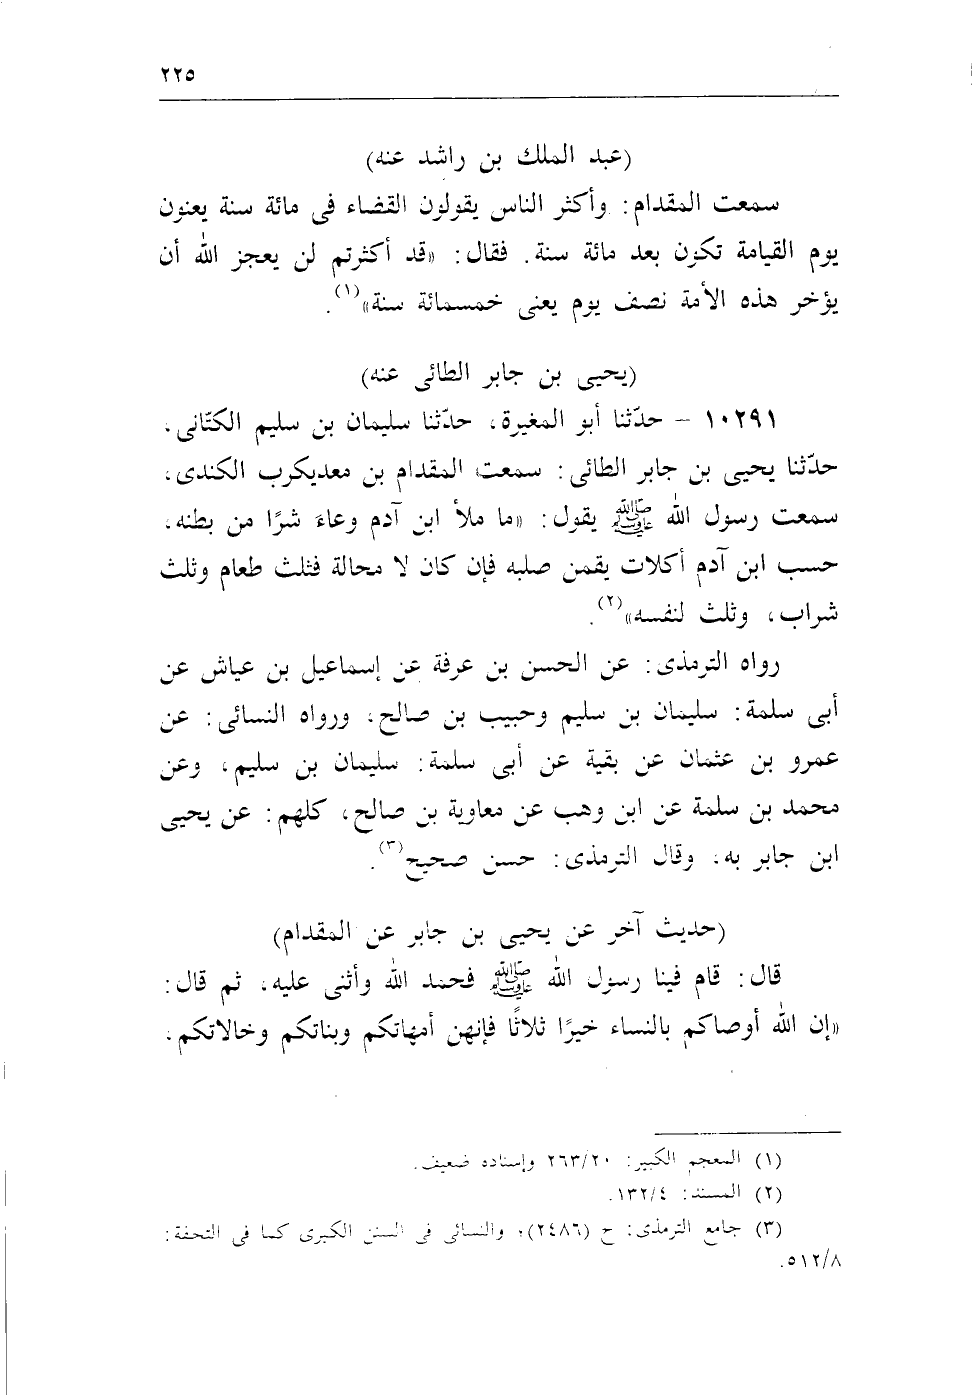 ٢٢٥
(عبد الملك بن راشد عنه)
سمعت المقدام: وأكثر الناس يقولون القضاء فى مائة سنة يعنون
يوم القيامة تكون بعد مائة سنة. فقال: «قد أكثرتم لن يعجز الله أن
يؤخر هذه الأمة نصف يوم يعنى خمسمائة سنة»(١).
(يحيى بن جابر الطائى عنه)
١٠٢٩١ - حدّثنا أبو المغيرة، حدّثنا سليمان بن سليم الكتّانى،
حدّثنا يحيى بن جابر الطائى: سمعت المقدام بن معديكرب الكندى،
سمعت رسول الله ﷺ يقول: «ما ملأ ابن آدم وعاءَ شرًا من بطنه،
حسب ابن آدم أكلات يقمن صلبه فإن كان لا محالة فثلث طعام وثلث
شراب، وثلث لنفسه»(٢).
رواه الترمذى: عن الحسن بن عرفة عن إسماعيل بن عياش عن
أبى سلمة: سليمان بن سليم وحبيب بن صالح، ورواه النسائى: عن
عمرو بن عثمان عن بقية عن أبى سلمة: سليمان بن سليم، وعن
محمد بن سلمة عن ابن وهب عن معاوية بن صالح، كلهم: عن يحيى
ابن جابر به، وقال الترمذى: حسن صحيح(٣).
(حديث آخر عن يحيى بن جابر عن المقدام)
قال: قام فينا رسول الله ﷺ فحمد الله وأثنى عليه، ثم قال:
«إن الله أوصاكم بالنساء خيرًا ثلاثًا فإنهن أمهاتكم وبناتكم وخالاتكم،
(١) المعجم الكبير: ٢٦٣/٢٠ وإسناده ضعيف.
(٢) المسند: ١٣٢/٤.
(٣) جامع الترمذى: ح (٢٤٨٦)؛ والنسائى فى السنن الكبرى كما فى التحفة:
٥١٢/٨.